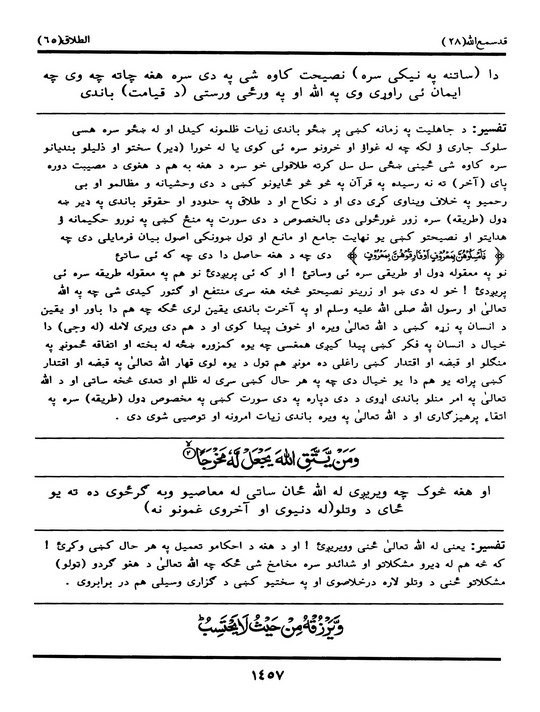 قدسمع الله(٢٨) الطلاق(٦٥)
دا (ساتنه په نیکی سره) نصیحت کاوه شی په دی سره هغه چاته چه وی چه
ایمان ئی راوړی وی په الله او په ورځی ورستی (د قیامت) باندی
تفسیر: د جاهلیت په زمانه کښی پر ښځو باندی زیات ظلمونه کیدل او له ښځو سره هسی
سلوک جاری ؤ لکه چه له غواؤ او خرونو سره ئی کوی یا له خورا (ډیر) سختو او ذلیلو بندیانو
سره کاوه شی ځینی ښځی سل سل کرته طلاقولی خو سره د هغه به هم د هغوی د مصیبت دوره
پای (آخر) ته نه رسیده په قرآن په څو څو ځایونو کښی د دی وحشیانه و مظالمو او بی
رحمیو په خلاف ویناوی کړی دی او د نکاح او د طلاق په حدودو او حقوقو باندی په ډیر ښه
ډول (طریقه) سره زور غورځولی دی بالخصوص د دی سورت په منځ کښی په نورو حکیمانه ؤ
هدایتو او نصیحتو کښی یو نهایت جامع او مانع او ټول ښوونکی اصول بیان فرمایلی دی چه
﴿ فَأَمْسِكُوهُنَّ بِمَعْرُوفٍ أَوْ فَارِقُوهُنَّ بِمَعْرُوفٍ ﴾ دی چه د هغه حاصل دا دی چه که ئی ساتئ
نو په معقوله ډول او طریقی سره ئی وساتئ ! او که ئی پریږدئ نو هم په معقوله طریقه سره ئی
پریږدئ ! خو له دی ښو او زرینو نصیحتو څخه هغه سړی منتفع او ګټور کیدی شی چه په الله
تعالیٰ او رسول الله صلی الله علیه وسلم او په آخرت باندی یقین لری ځکه چه هم دا باور او یقین
د انسان په زړه کښی د الله تعالیٰ ویره او خوف پیدا کوی او د هم دی ویری لامله (له وجی) دا
خیال د انسان په فکر کښی پیدا کیږی همغسی چه یوه کمزوره ښځه له بخته او اتفاقه ځمونږ په
منګلو او قبضه او اقتدار کښی راغلی ده مونږ هم ټول د یوه لوی قهار الله تعالیٰ په قبضه او اقتدار
کښی پراته یو هم دا یو خیال دی چه په هر حال کښی سړی له ظلم او تعدی څخه ساتی او د الله
تعالیٰ په امر منلو باندی اړوی د دی دپاره په دی سورت کښی په مخصوص ډول (طریقه) سره په
اتقاء پرهیزګاری او د الله تعالیٰ په ویره باندی زیات امرونه او توصیی شوی دی .
وَمَنْ يَّتَّقِ اللّٰهَ يَجْعَلْ لَّهٗ مَخْرَجًا ۙ ﴿۲﴾
او هغه څوک چه ویریږی له الله ځان ساتی له معاصیو وبه ګرځوی ده ته یو
ځای د وتلو(له دنیوی او آخروی غمونو نه)
تفسیر: یعنی له الله تعالیٰ ځنی وویریږئ ! او د هغه د احکامو تعمیل په هر حال کښی وکړئ !
که څه هم له ډیرو مشکلاتو او شدائدو سره مخامخ شی ځکه چه الله تعالیٰ د هغو ګردو (ټولو)
مشکلاتو ځنی د وتلو لاره درخلاصوی او په سختیو کښی د ګزاری وسیلی هم در برابروی .
وَّيَرْزُقْهُ مِنْ حَيْثُ لَا يَحْتَسِبُ ؕ
١٤٥٧